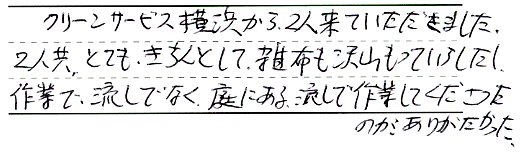 クリーンサービス横浜から、2人来ていただきました。
2人共、とても、きちんとして、雑布も沢山もっていらしたし、
作業で、流しでなく、庭にある、流しで作業してくださった
のがありがたかった。